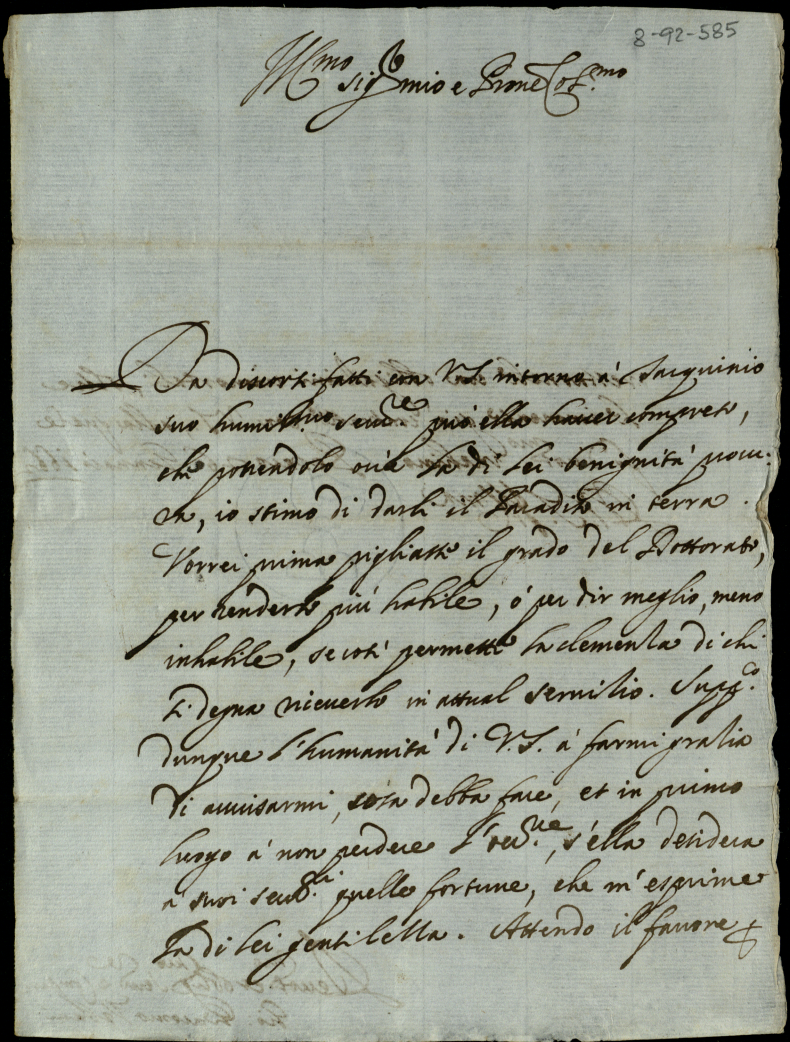 8-92-585
Ill.mo sig.r mio e Prone Col.mo
Da discorsi fatti con V.S. intorno à Tarquinio
suo humiliss.mo ser.re può ella haver compreso,
che ponendolo ov'è la di lei benignità procu-
ra, io stimo di darli il Paradiso in terra.
Vorrei prima pigliasse il grado del Dottorato,
per renderlo più habile, ò per dir meglio, meno
inhabile, se così permette la clemenza di chi
si degna riceverlo in attual servitio. Supp.co
dunque l'humanità di V.S. à farmi gratia
di avvisarmi, cosa debba fare, et in primo
luogo à non perdere l', s'ella desidera
à suoi ser.ri quelle fortune, che m'esprime
la di lei gentilezza. Attendo il favore